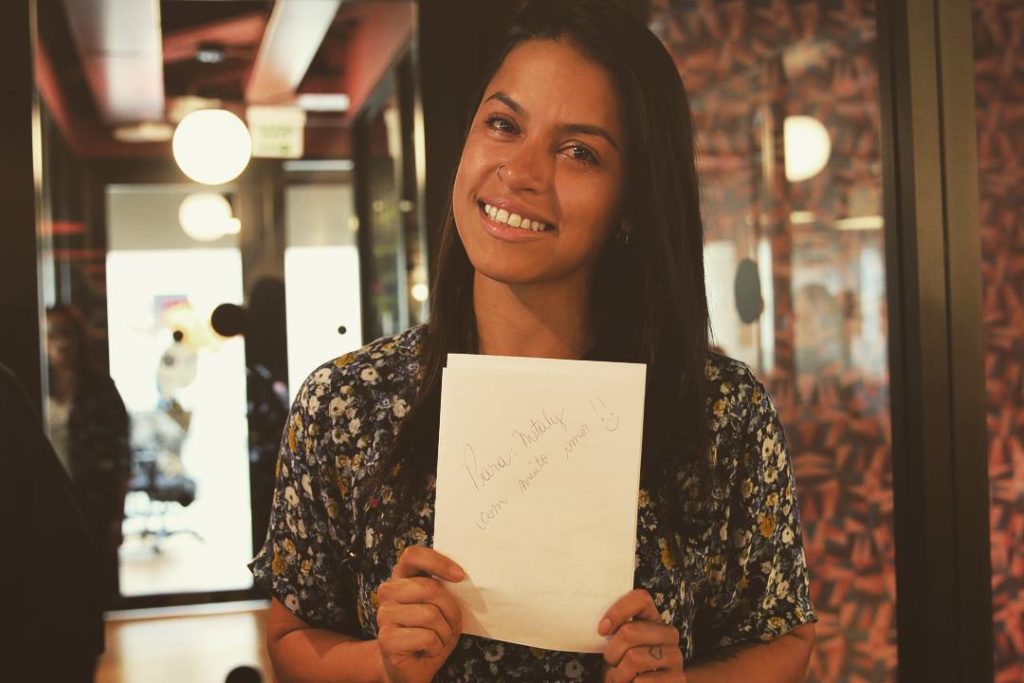 Para: Nataly
com muito amor!! :)